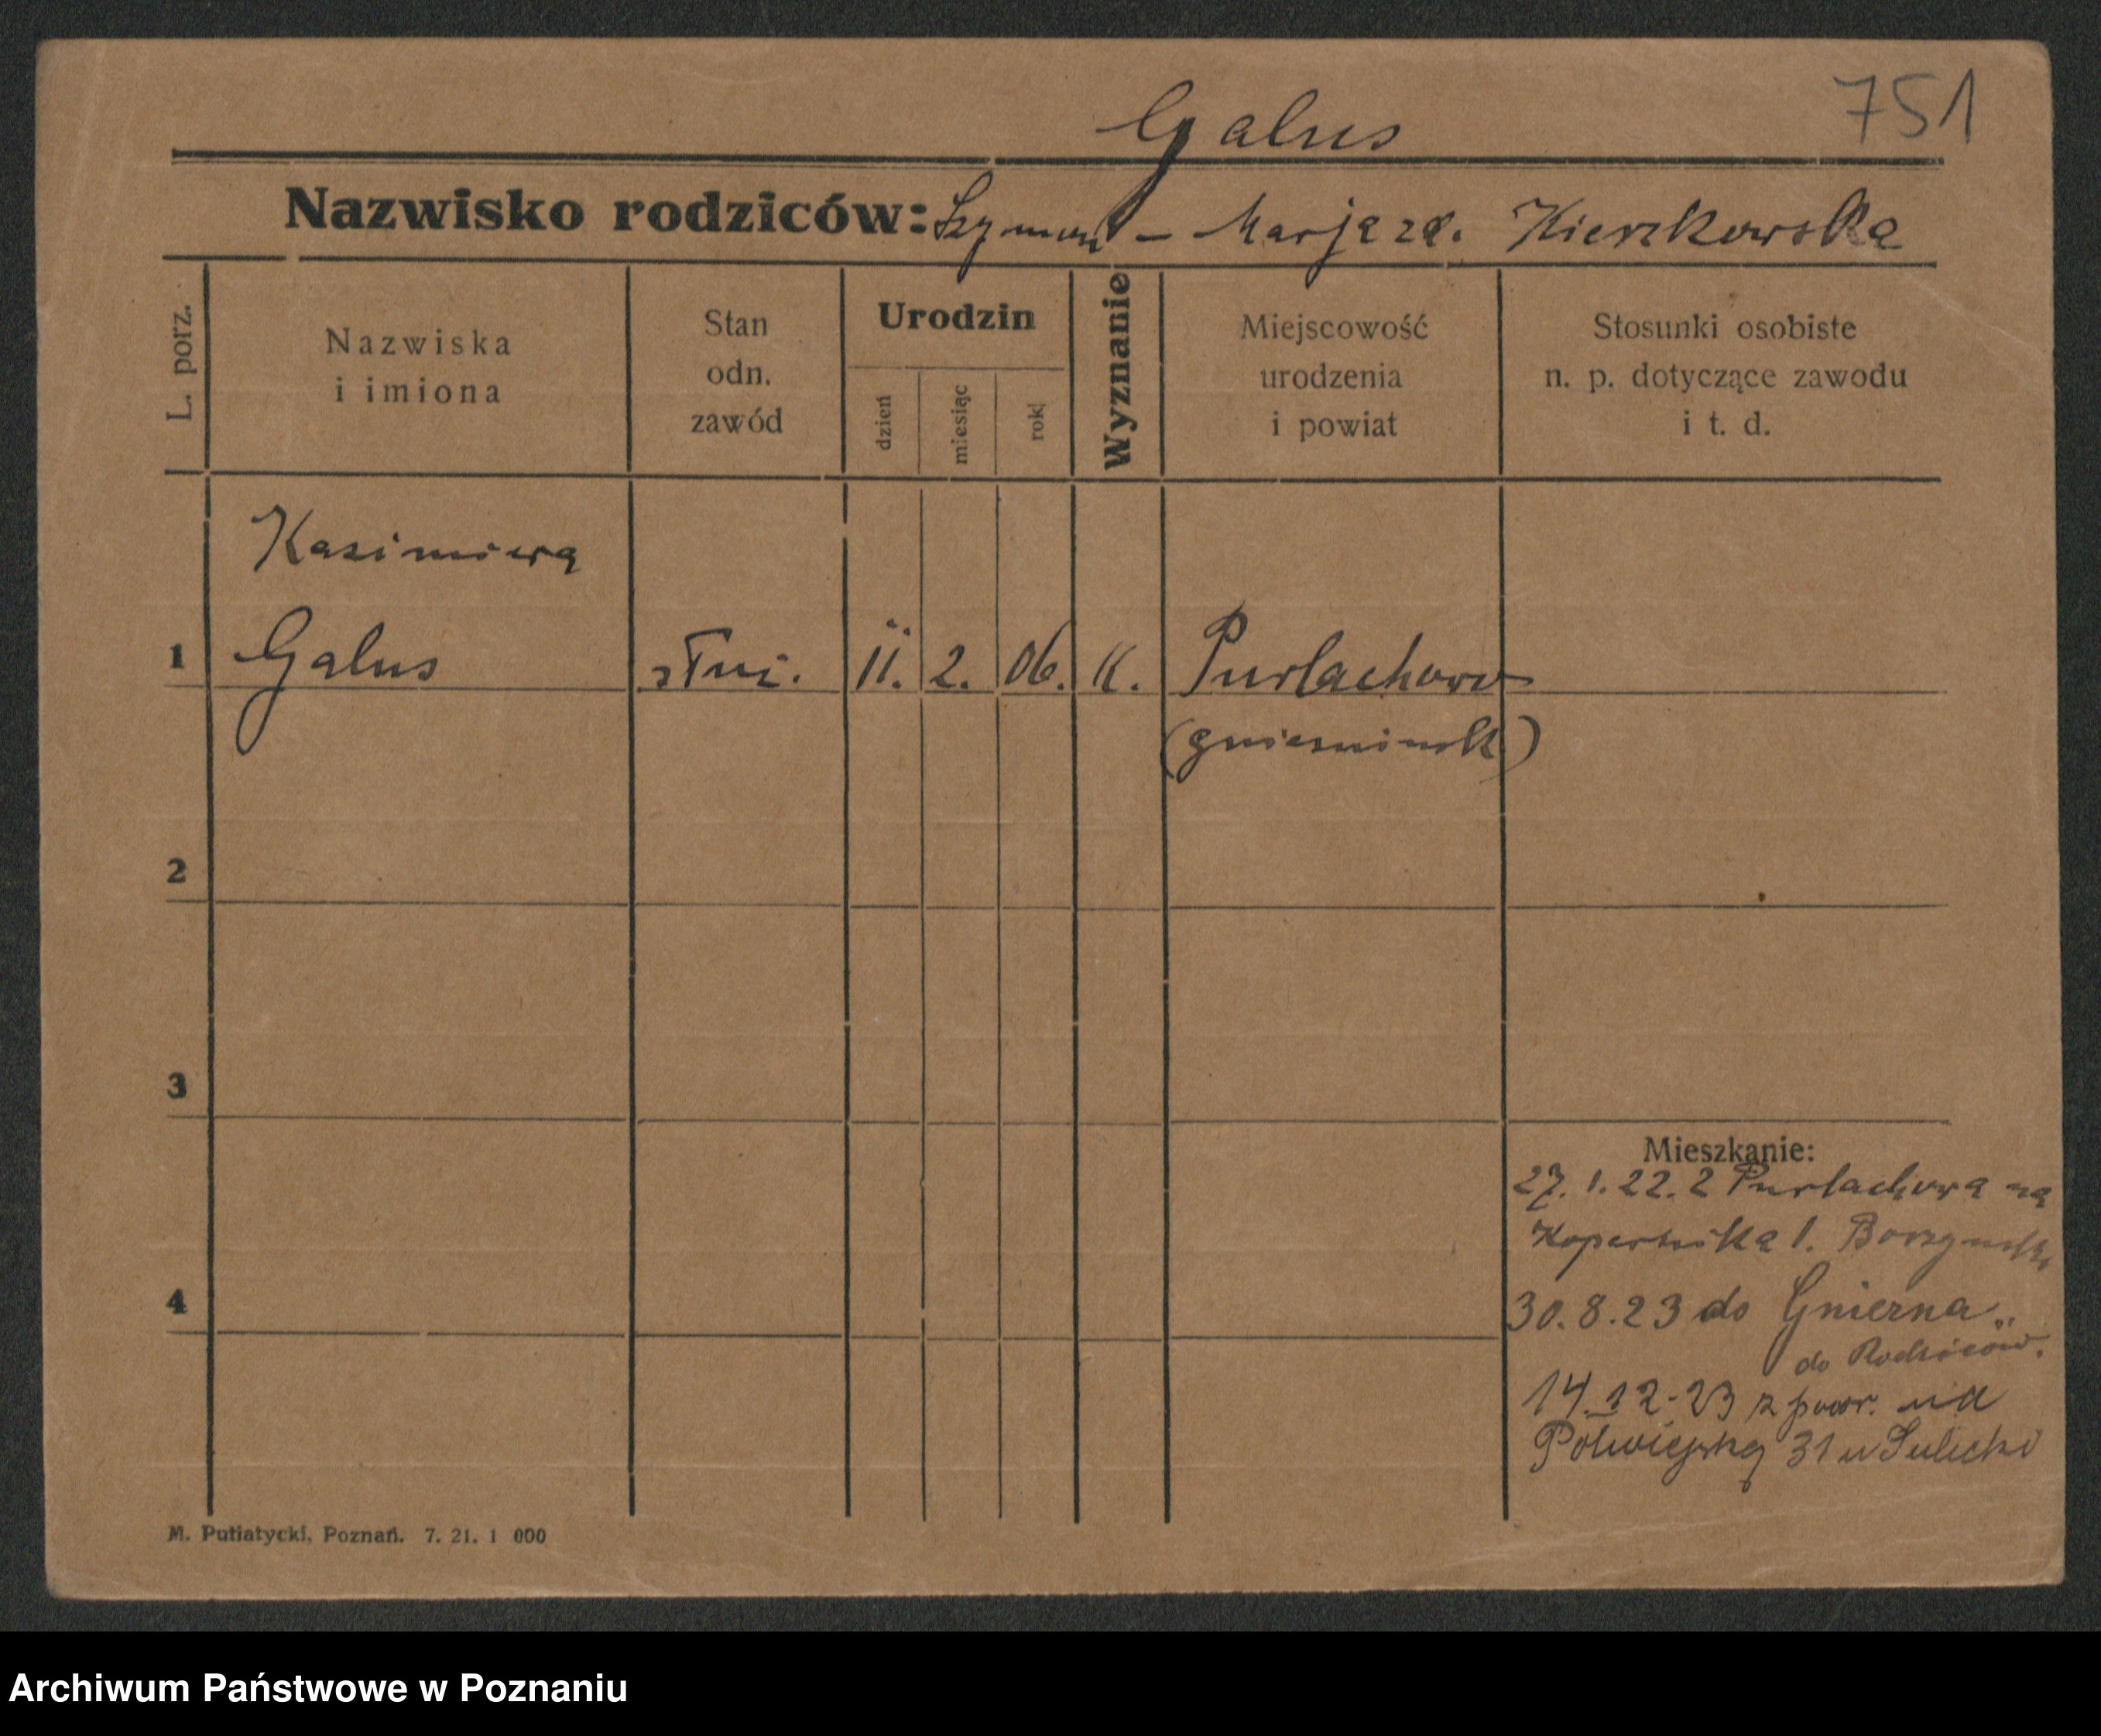 751
Galus
Nazwisko rodziców: Szymon - Marja zd. Kierzkowska
L. porz.
Nazwiska i imiona
Stan odn. zawód
Urodzin
dzień
miesiąc
rok
Wyznanie
Miejscowość urodzenia i powiat
Stosunki osobiste n. p. dotyczące zawodu i t. d.
Kasimiera
1 Galus służ. 11. 2. 06. K. Purlachowo
(gnieźnińsk)
2
3
Mieszkanie:
27. 1. 22. z Purlachowa na
Kopernika 1.
4
30.8.23 do Gniezna
do Rodziców.
14.12.23 z powr. na
Półwiejską 31 u Sulecki
M. Putiatycki, Poznań. 7. 21. 1 000
Archiwum Państwowe w Poznaniu